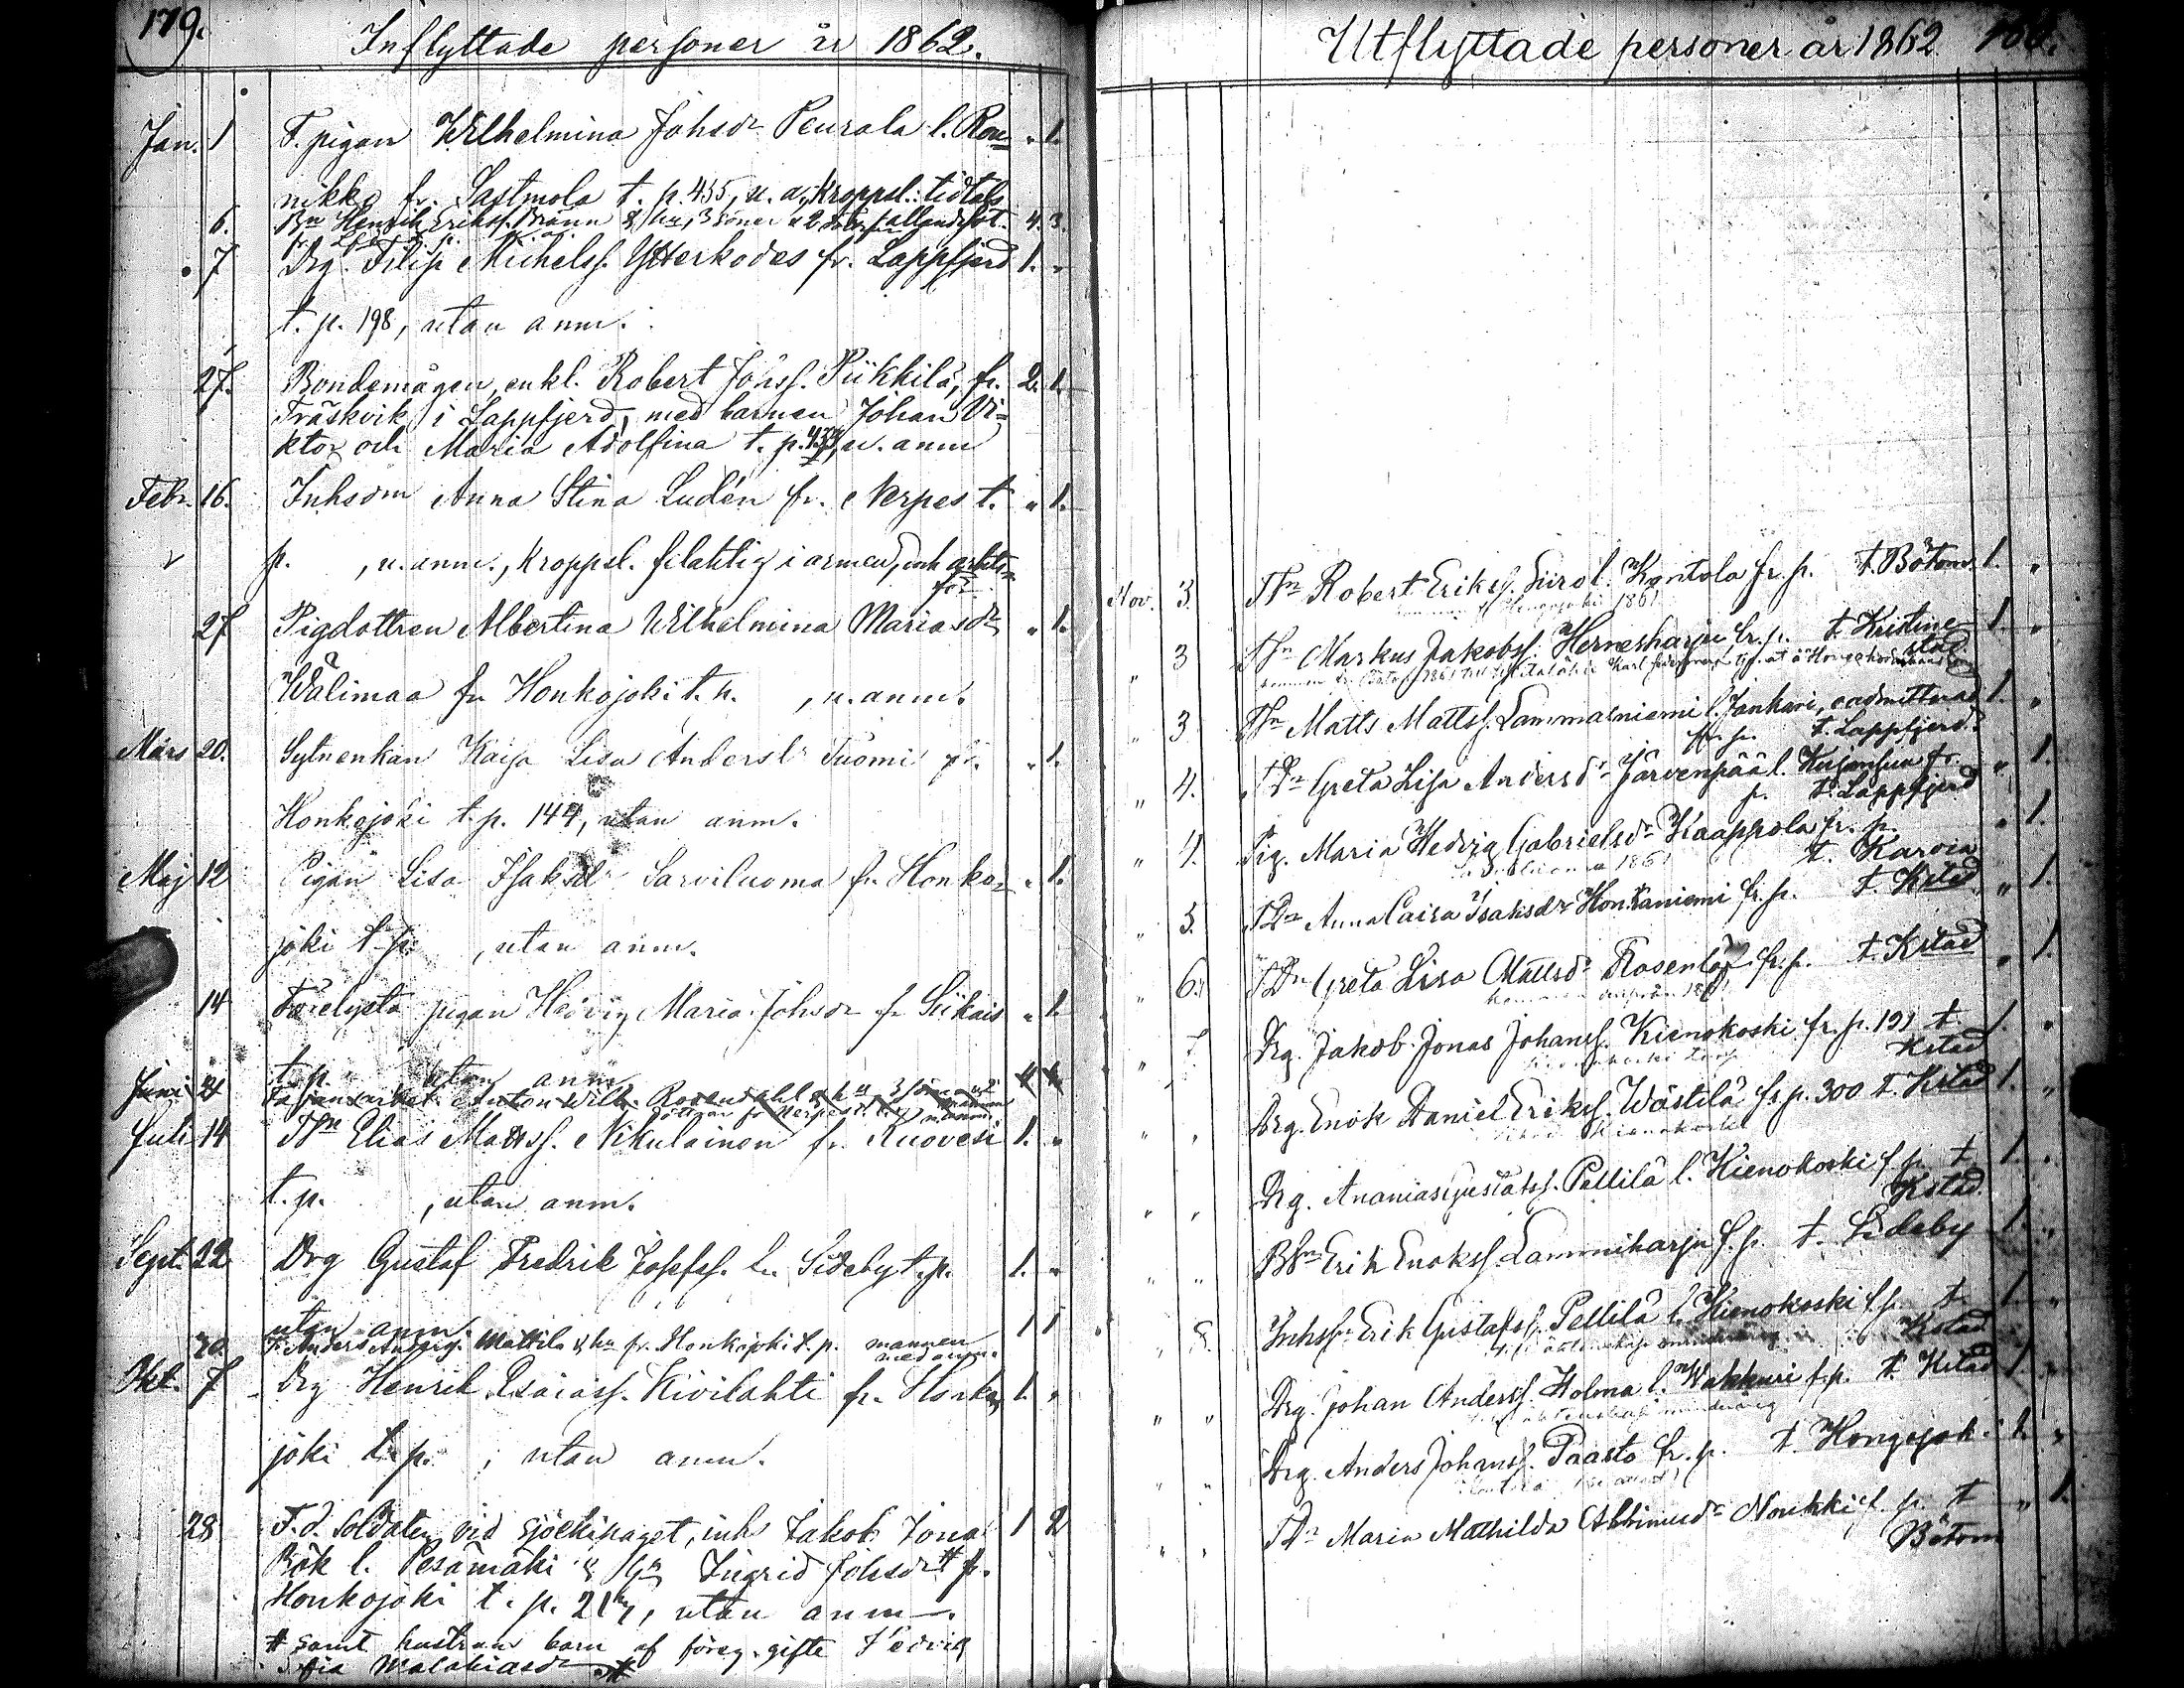 179.
Inflyttade personer år 1862.
Jan. 1 F. pigan Wilhelmina Johsdr Peurala l. Ron= „ 1.
nikko fr. Sastmola t. p. 455, u. a., kroppsl.
6. Bn Henrik Eriksf. Bränn & hu, 3 söner & 2 4. 3.
7 Drg. Filip Michelsf. Ytterkodes fr. Lappfjerd 1. „
t. p. 198, utan anm.
27. Bondemågen, enkl. Robert Johsf. Piikkilä, fr. 2. 1.
Träskvik i Lappfjerd, med barnen Johan Vi=
ktor och Maria Adolfina t. p. 433, u. anm
Febr. 16. Inhsdm Anna Stina Ludén fr. Nerpes t. „ 1.
p. , u. anm., kroppsl. felaktig i armen,
27 Pigdottren Albertina Wilhelmina Mariasdr „ 1.
Wälimaa fr Honkojoki t. p. , u. anm.
Mars 20. Sytnenkan Kaisa Lisa Andersdr Tuomi fr. „ 1.
Honkojoki t. p. 144, utan anm.
Maj 12 Pigan Lisa Isaksdr Sarviluoma fr. Honko= „ 1.
joki t. p. , utan anm.
14 pigan Hedvig Maria Johsdr fr Siikais „ 1.
t. p. utan anm
Juni Anton Wilh. Rosendahl & hu 3 söner
döttrar fr Nerpes
Juli 14 Thn Elias Mattsf. Nikulainen fr. Ruovesi 1. „
t. p. , utan anm.
Sept. 22 Drg Gustaf Fredrik Josefsf. fr. Sideby t. p. 1. „
utan anm.
20. Anders Andersf. Mattila & hu fr. Honkojoki t. p. mannen 1 1
med anm.
Okt. 7 Drg Henrik Esaiasf. Kivilahti fr. Honko= 1. „
joki t. p. , utan anm.
28 F. d. soldaten vid sjöekipaget, inhs Jakob Jona 1 2
Bök l. Pesämäki & Hu Ingrid Johsdr # fr.
Honkojoki t. p. 217, utan anm.
# samt hustruns barn af föreg. gifte Hedvig
Sofia Malakiasdr #
Utflyttade personer år 1862 180.
Nov. 3. Thn Robert Eriksf. Siiro l. Kantola fr. p. t. Bötom 1. „
1861
„ 3 Thn Markus Jakobsf. Hernesharju fr. p. t. Kristine= 1. „
stad
„ 3 Thn Matts Mattsf. Lammasniemi l. Jankari, oadmitterad 1. „
fr. p. t. Lappfjerd.
„ 4. TDr Greta Lisa Andersdr Järvenpää l. fr. „ 1.
p. t. Lappfjerd
„ 4. Pig. Maria Hedvig Gabrielsdr Kaappola fr. p. „ 1.
1861 t. Karvia
„ 5. TDr Anna Caisa Isaksdr Honkaniemi fr. p. t. Kstad „ 1.
„ 6. TDr Greta Lisa Mattsdr Rosenlöf fr. p. t. Kstad „ 1.
„ 7. Drg. Jakob Jonas Johansf. Kienokoski fr. p. 191 t. 1. „
Kstad
„ „ Drg. Enok Daniel Eriksf. Wästilä fr. p. 300 t. Kstad 1. „
„ „ Drg. Ananias Gustafsf. Pellilä l. Kienokoski f. p. t. 1. „
Kstad.
„ „ BSn Erik Enoksf. Lamminharju f. p. t. Sideby 1. „
„ 8. Inhsn Erik Gustafsf. Pellilä l. Kienokoski f. p. t. 1. „
Kstad
„ „ Drg. Johan Andersf. Holma l. Wakkuri f. p. t. Kstad 1. „
„ „ Drg. Anders Johansf. Paasto fr. p. t. Hongojoki 1. „
„ „ TDr Maria Mathilda Nonkki f. p. t. „ 1.
Bötom